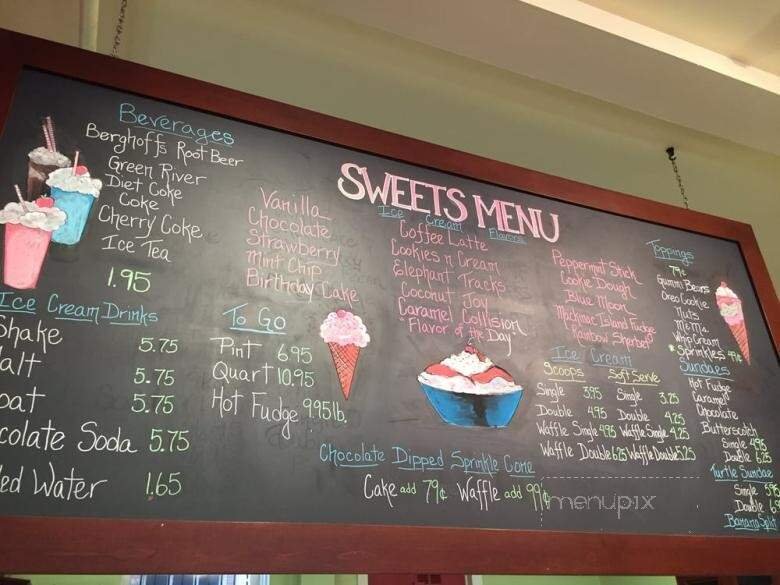 Beverages
Berghoff's Root Beer
Green River
Diet Coke
Coke
Cherry Coke
Ice Tea
1.95
Ice Cream Drinks
Shake 5.75
alt 5.75
oat 5.75
colate Soda 5.75
ed Water 1.65
Vanilla
Chocolate
Strawberry
Mint Chip
Birthday Cake
To Go
Pint 6.95
Quart 10.95
Hot Fudge 9.95 lb.
SWEETS MENU
Ice Cream Flavors
Coffee Latte
Cookies n Cream
Elephant Tracks
Coconut Joy
Caramel Collision
"Flavor of the Day"
Peppermint Stick
Cookie Dough
Blue Moon
Mackinac Island Fudge
Rainbow Sherbet
Ice Cream
Scoops Soft Serve
Single 3.95 Single 3.25
Double 4.95 Double 4.25
Waffle Single 4.95 Waffle Single 4.25
Waffle Double 6.25 Waffle Double 5.25
Chocolate Dipped Sprinkle Cone
Cake add 79¢ Waffle add 99¢
Toppings
79¢
Gummi Bears
Oreo Cookie
Nuts
M&Ms
Whip Cream
* Sprinkles 99¢
Sundaes
Hot Fudge
Caramel
Chocolate
Butterscotch
Single 4.95
Double 6.25
Turtle Sundae
Single 5.95
Double 6.
Banana Split
menupix